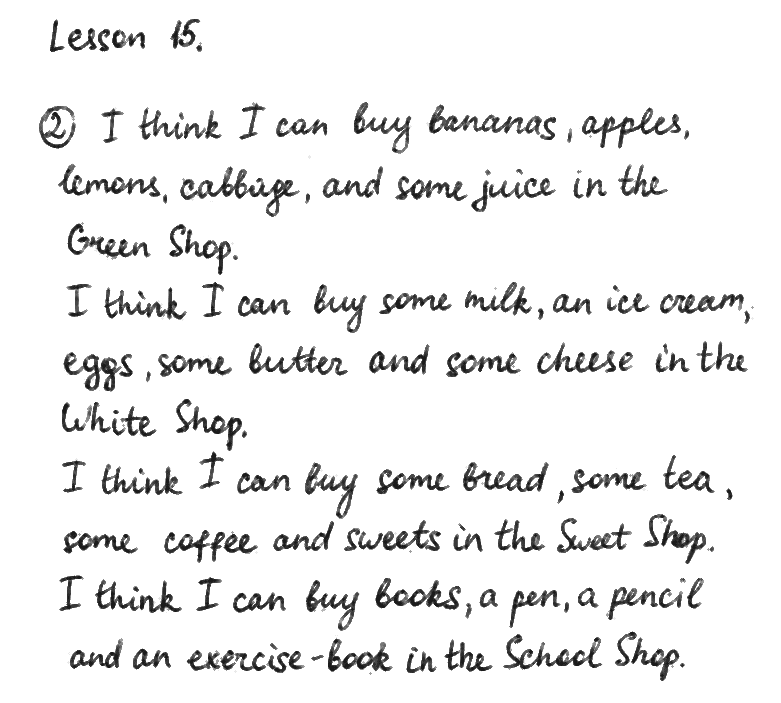 Lesson 15.
② I think I can buy bananas, apples,
lemons, cabbage, and some juice in the
Green Shop.
I think I can buy some milk, an ice cream,
eggs, some butter and some cheese in the
White Shop.
I think I can buy some bread, some tea,
some coffee and sweets in the Sweet Shop.
I think I can buy books, a pen, a pencil
and an exercise-book in the School Shop.